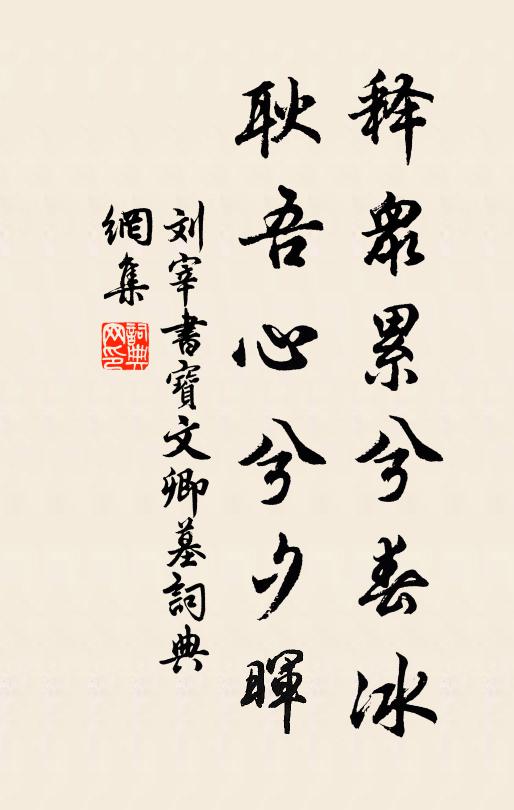 释眾累兮春冰
耿吾心兮夕暉
刘宰書寶文卿墓詞典
網集
詞典
网印